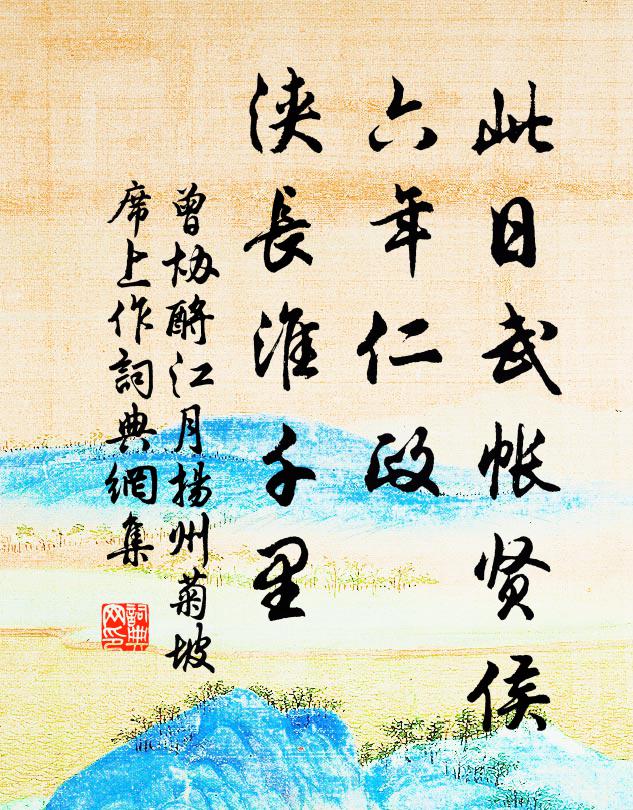 此日武帐贤侯
六年仁政
浃长淮千里
曾协酹江月扬州菊坡
席上作词典网集
词典网印